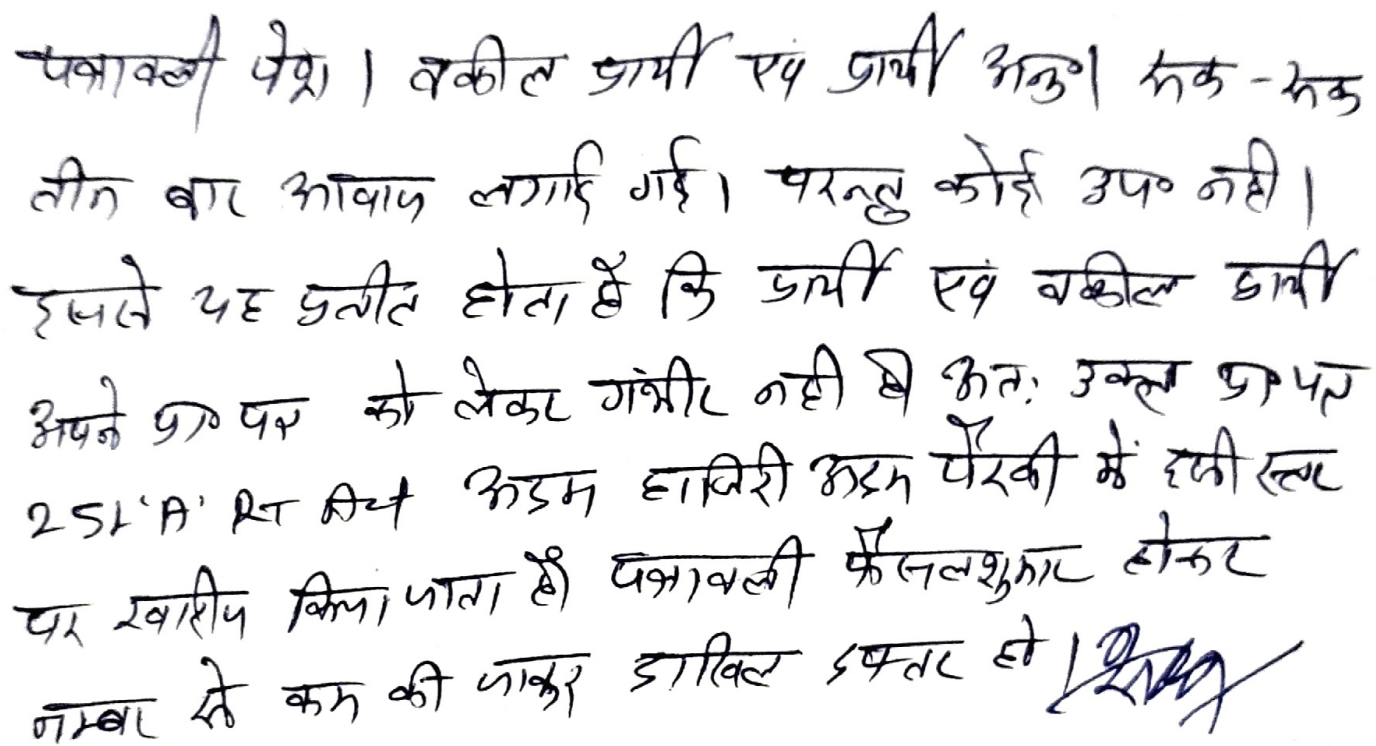 पत्रावली पेश। वकील प्रार्थी एवं प्रार्थी अनु०। रूक-रूक
तीन बार आवाज लगाई गई। परन्तु कोई उप० नही।
इससे यह प्रतीत होता है कि प्रार्थी एवं वकील प्रार्थी
अपने प्रा० पत्र को लेकर गंभीर नही है अतः उक्त प्रा० पत्र
251 'A' RT Act अदम हाजिरी अदम पैरवी में इसी स्तर
पर खारीज किया जाता है। पत्रावली फैसलशुमार होकर
नम्बर से कम की जाकर दाखिल दफ्तर हो।